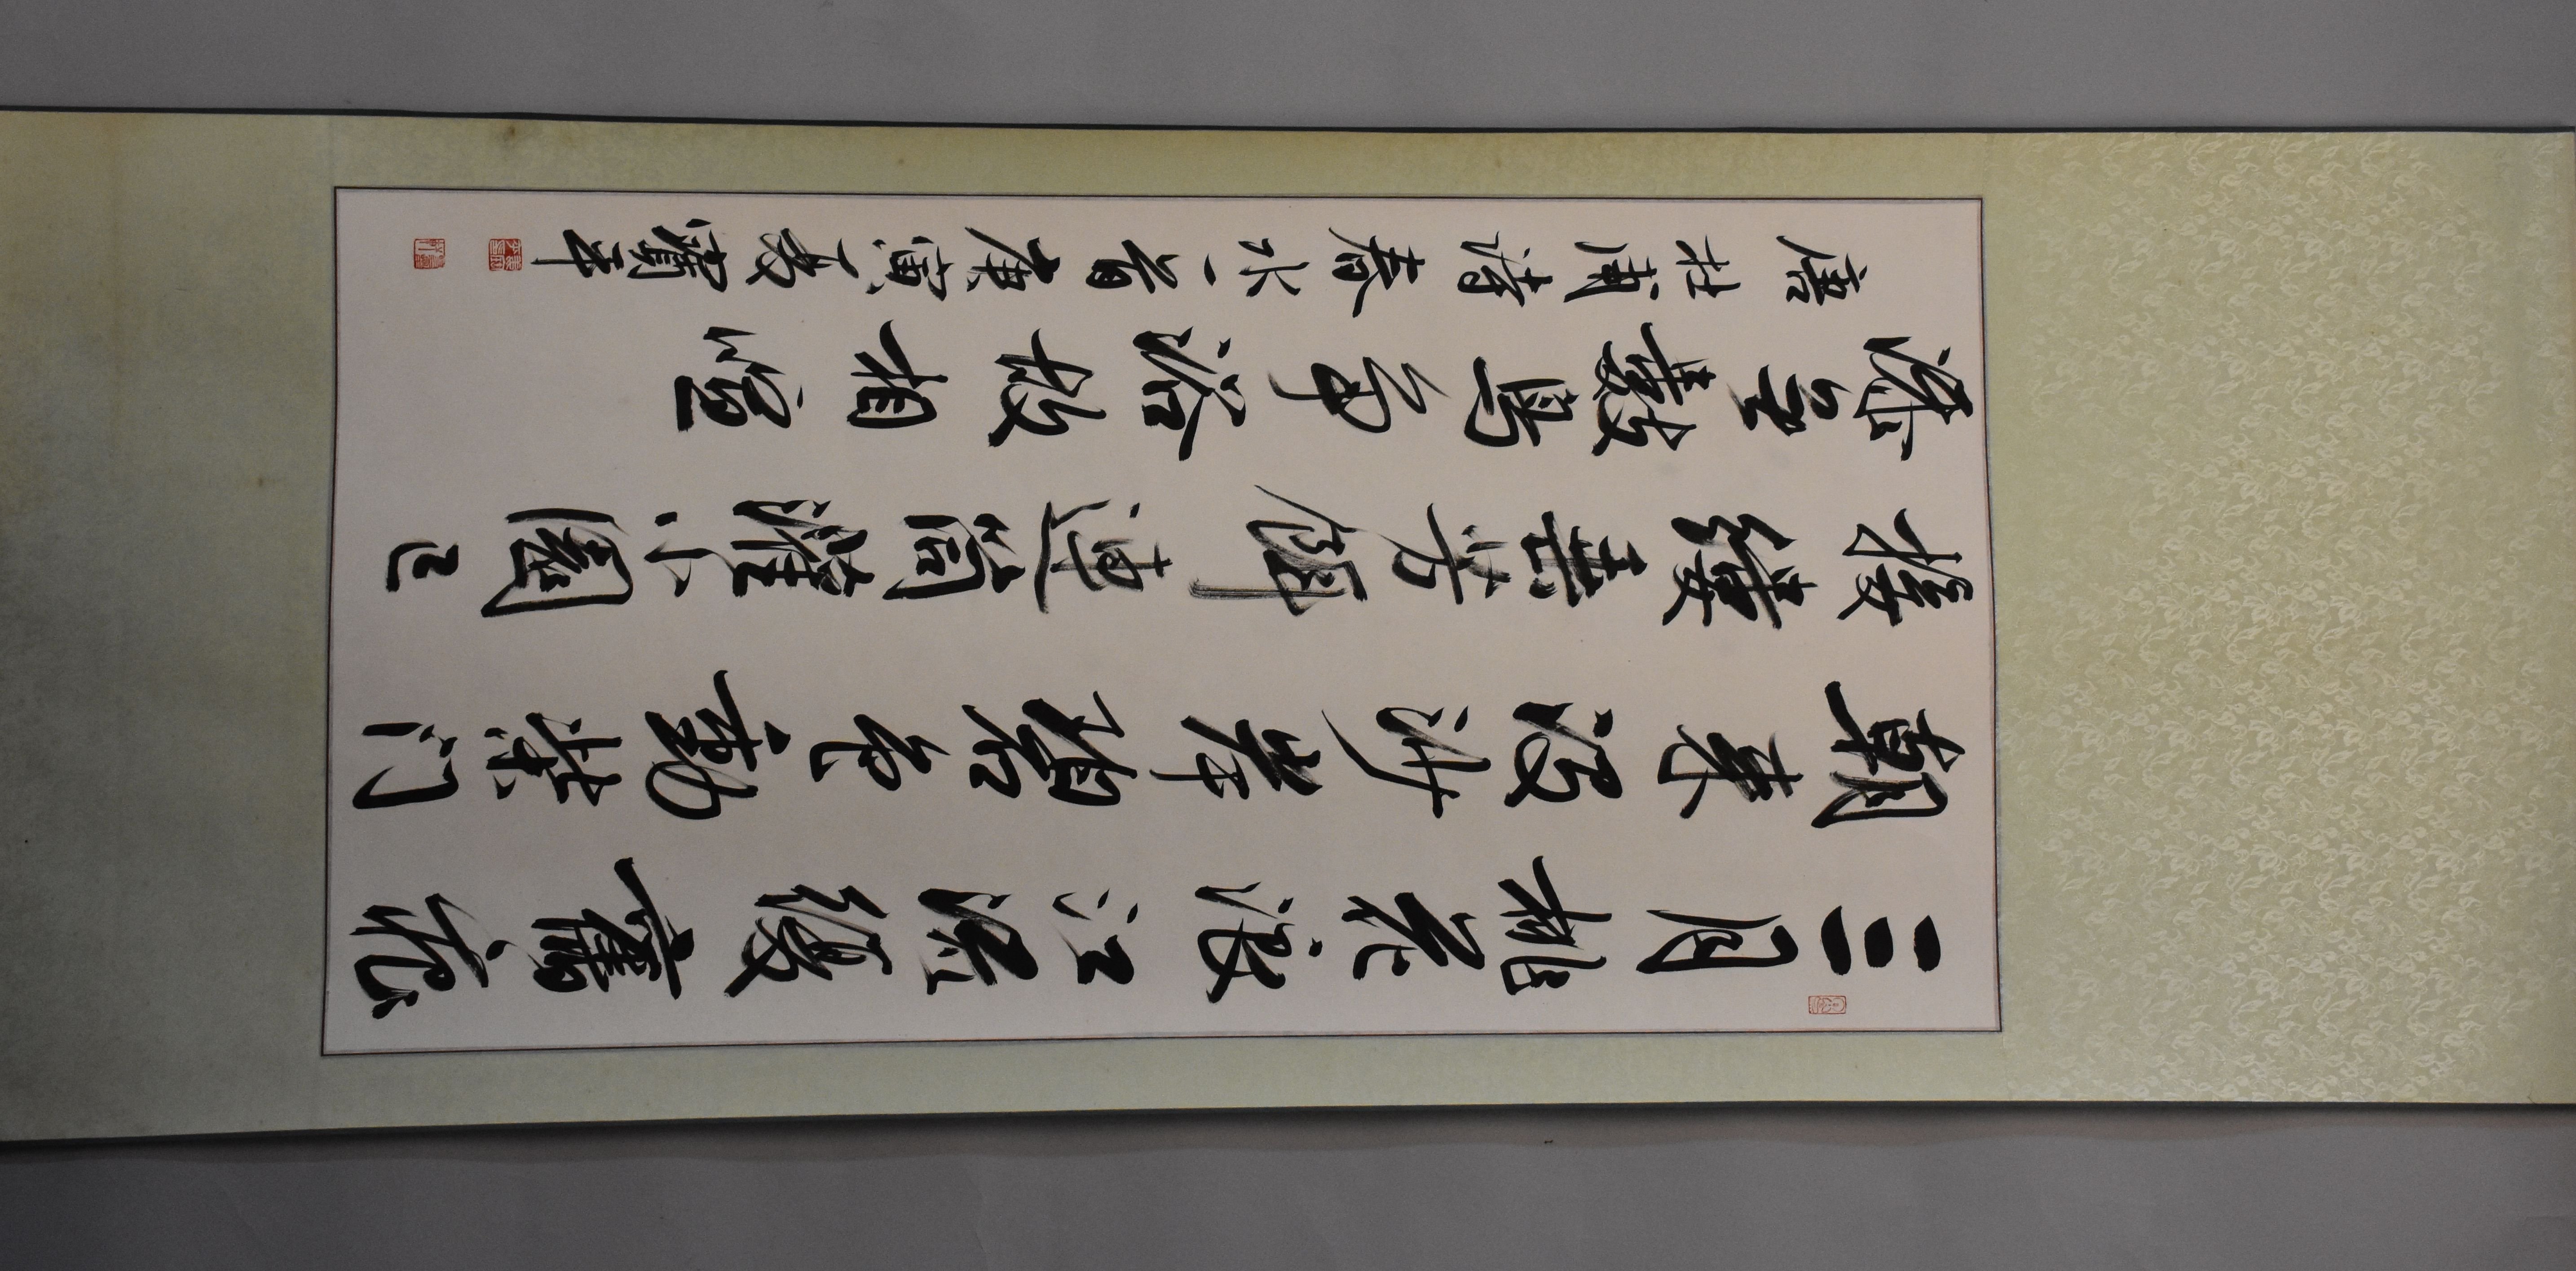 三月桃花浪江流復舊痕
朝来没沙岸碧色動柴门
接縷垂芳餌連筒灌小園已
添无數鳥争浴故相喧
唐杜甫詩春水一首庚寅夏